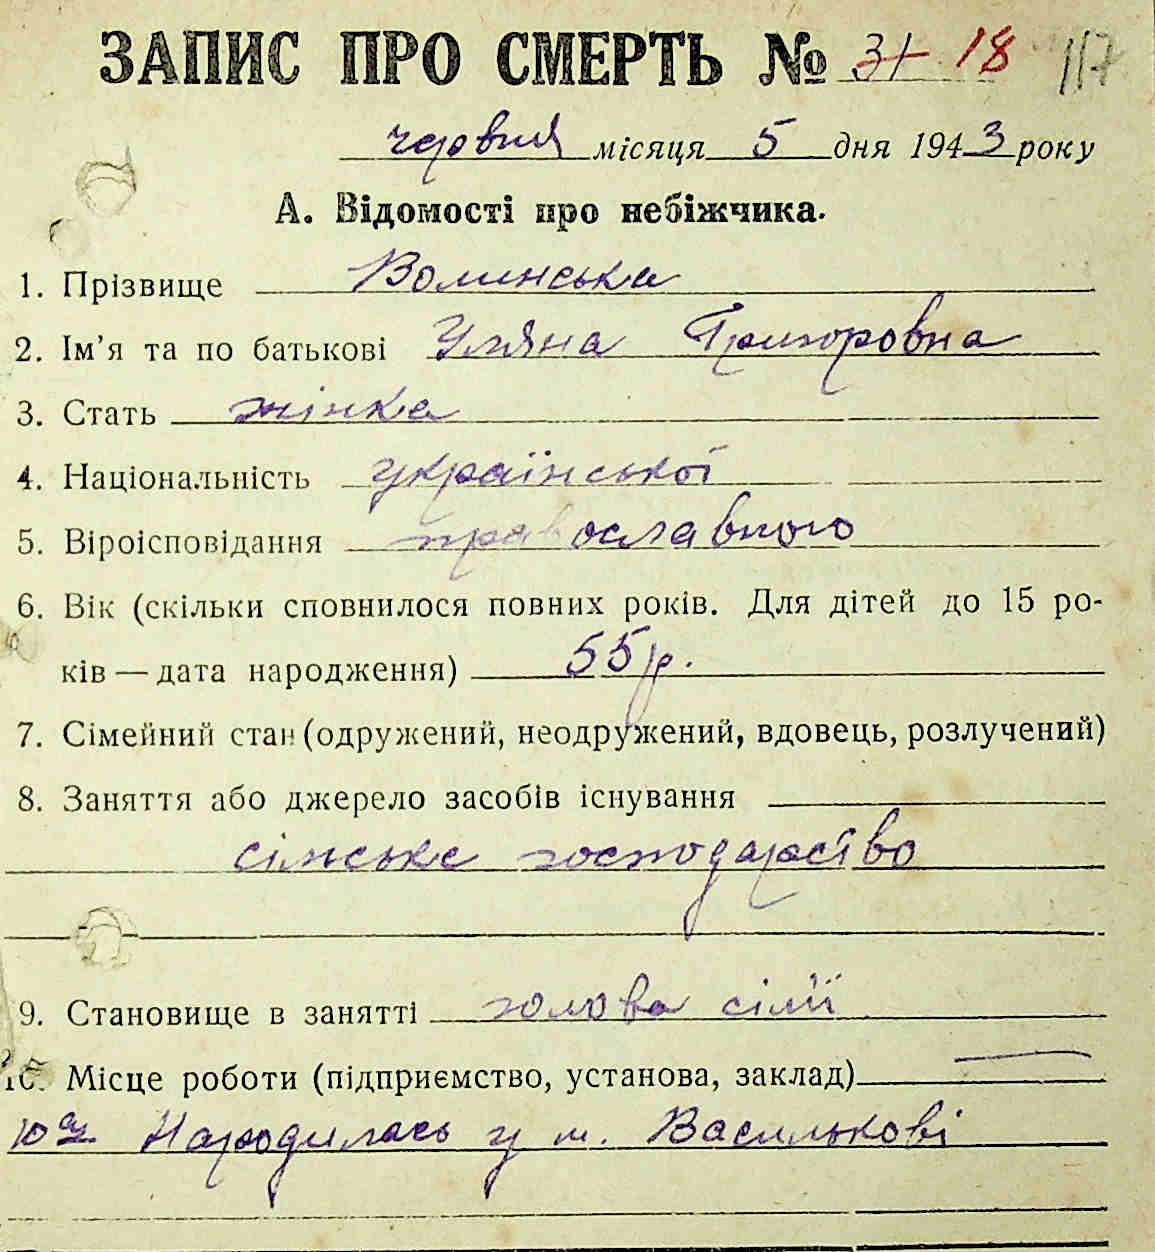 ЗАПИС ПРО СМЕРТЬ № 31 18 117
червня місяця 5 дня 1943 року
А. Відомості про небіжчика.
1. Прізвище Волинська
2. Ім'я та по батькові Уляна Григоровна
3. Стать жінка
4. Національність української
5. Віроісповідання православного
6. Вік (скільки сповнилося повних років. Для дітей до 15 ро-
ків — дата народження) 55 р.
7. Сімейний стан (одружений, неодружений, вдовець, розлучений)
8. Заняття або джерело засобів існування
сільське господарство
9. Становище в занятті голова сімї
10. Місце роботи (підприємство, установа, заклад) —
10а. Народилась у м. Василькові